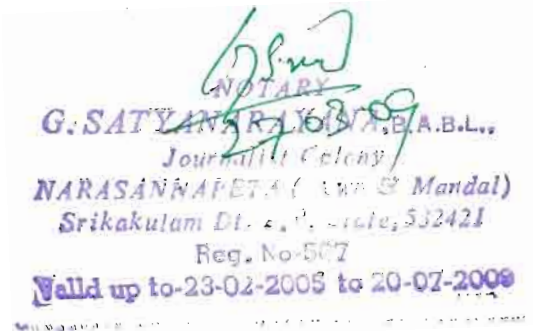 NOTARY
G. SATYANARAYANA, B.A.B.L.,
27-03-09
Journalist Colony
NARASANNAPETA ( & Mandal)
Srikakulam Dt. State, 532421
Reg. No-567
Valid up to-23-02-2005 to 20-07-2009